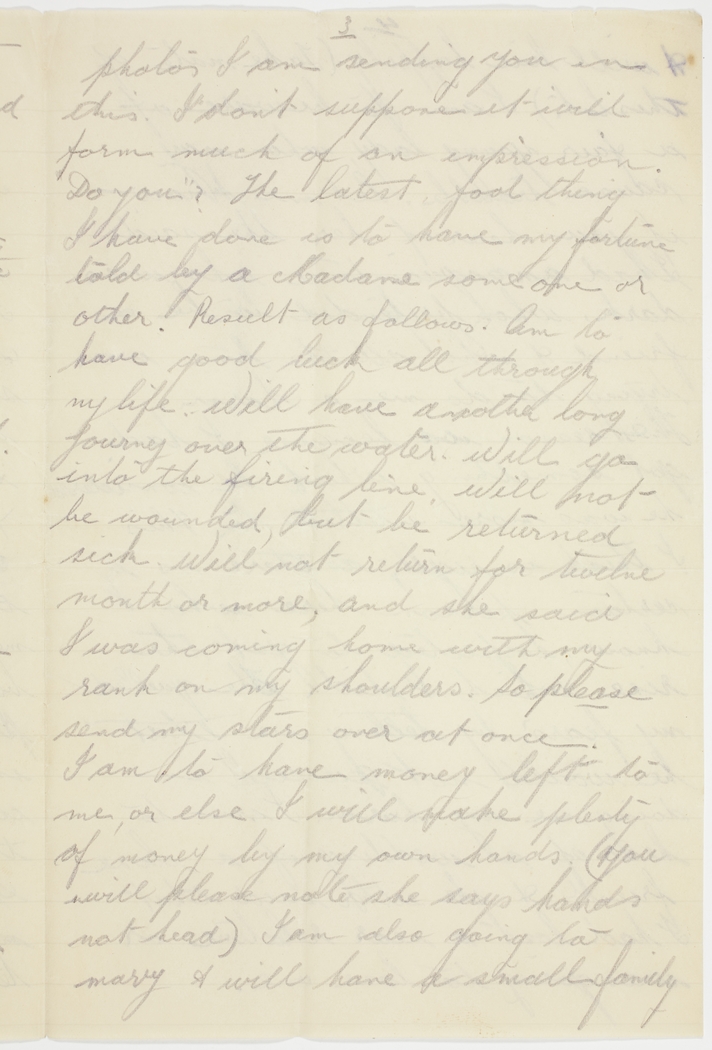 3
photos I am sending you in
this. I don't suppose it will
form much of an impression.
Do you"? The latest fool thing
I have done is to have my fortune
told by a Madame some one or
other. Result as follows. Am to
have good luck all through
my life. Will have another long
Journy over the water. Will go
into the firing line. Will not
be wounded, but be returned
sick. Will not return for twelve
month or more, and she said
I was coming home with my
rank on my shoulders. So please
send my stars over at once.
I am to have money left to
me, or else I will make plenty
of money by my own hands. (You
will please note she says hands
not head) I am also going to
marry & will have a small family